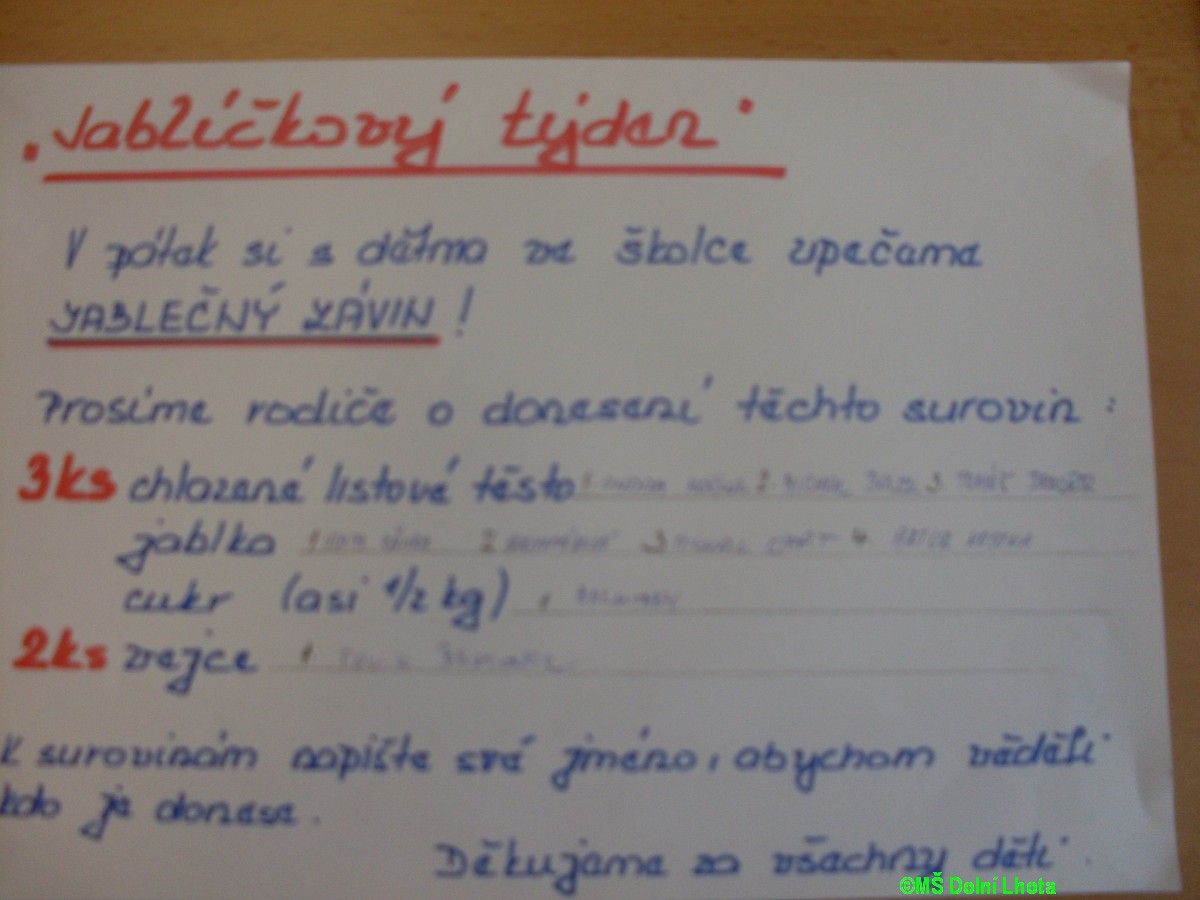 "Jablíčkový týden"
V pátek si s dětma ve školce upečeme
JABLEČNÝ ZÁVIN!
Prosíme rodiče o donesení těchto surovin:
3ks chlazené listové těsto 1 2 3
jablka 1 2 3 4
cukr (asi 1/2 kg) 1
2ks vejce 1
K surovinám napište své jméno, abychom věděli
kdo je donese.
Děkujeme za všechny děti.
©MŠ Dolní Lhota